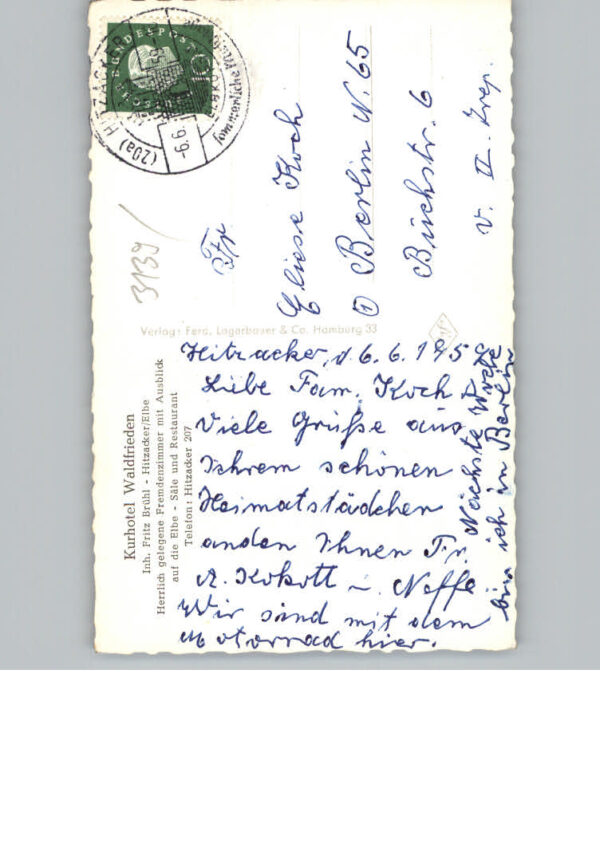 Kurhotel Waldfrieden
Inh. Fritz Brühl - Hitzacker/Elbe
Herrlich gelegene Fremdenzimmer mit Ausblick
auf die Elbe - Säle und Restaurant
Telefon: Hitzacker 207
Hitzacker, d. 6.6.195
Liebe Fam. Koch!
Viele Grüße aus
Ihrem schönen
Heimatstädchen
anden Ihnen Fr.
A. Kokott u. Neffe
Wir sind mit dem
Motorrad hier.
Nächste Woche
bin ich in Berlin
Verlag: Ferd. Lagerbauer & Co. Hamburg 33
3139
Fr
Eliese Koch
1 Berlin N. 65
Buchstr. 6
v. II Trep.
DEUTSCHE BUNDESPOST
10
(20a) HITZACKER
-6.6.